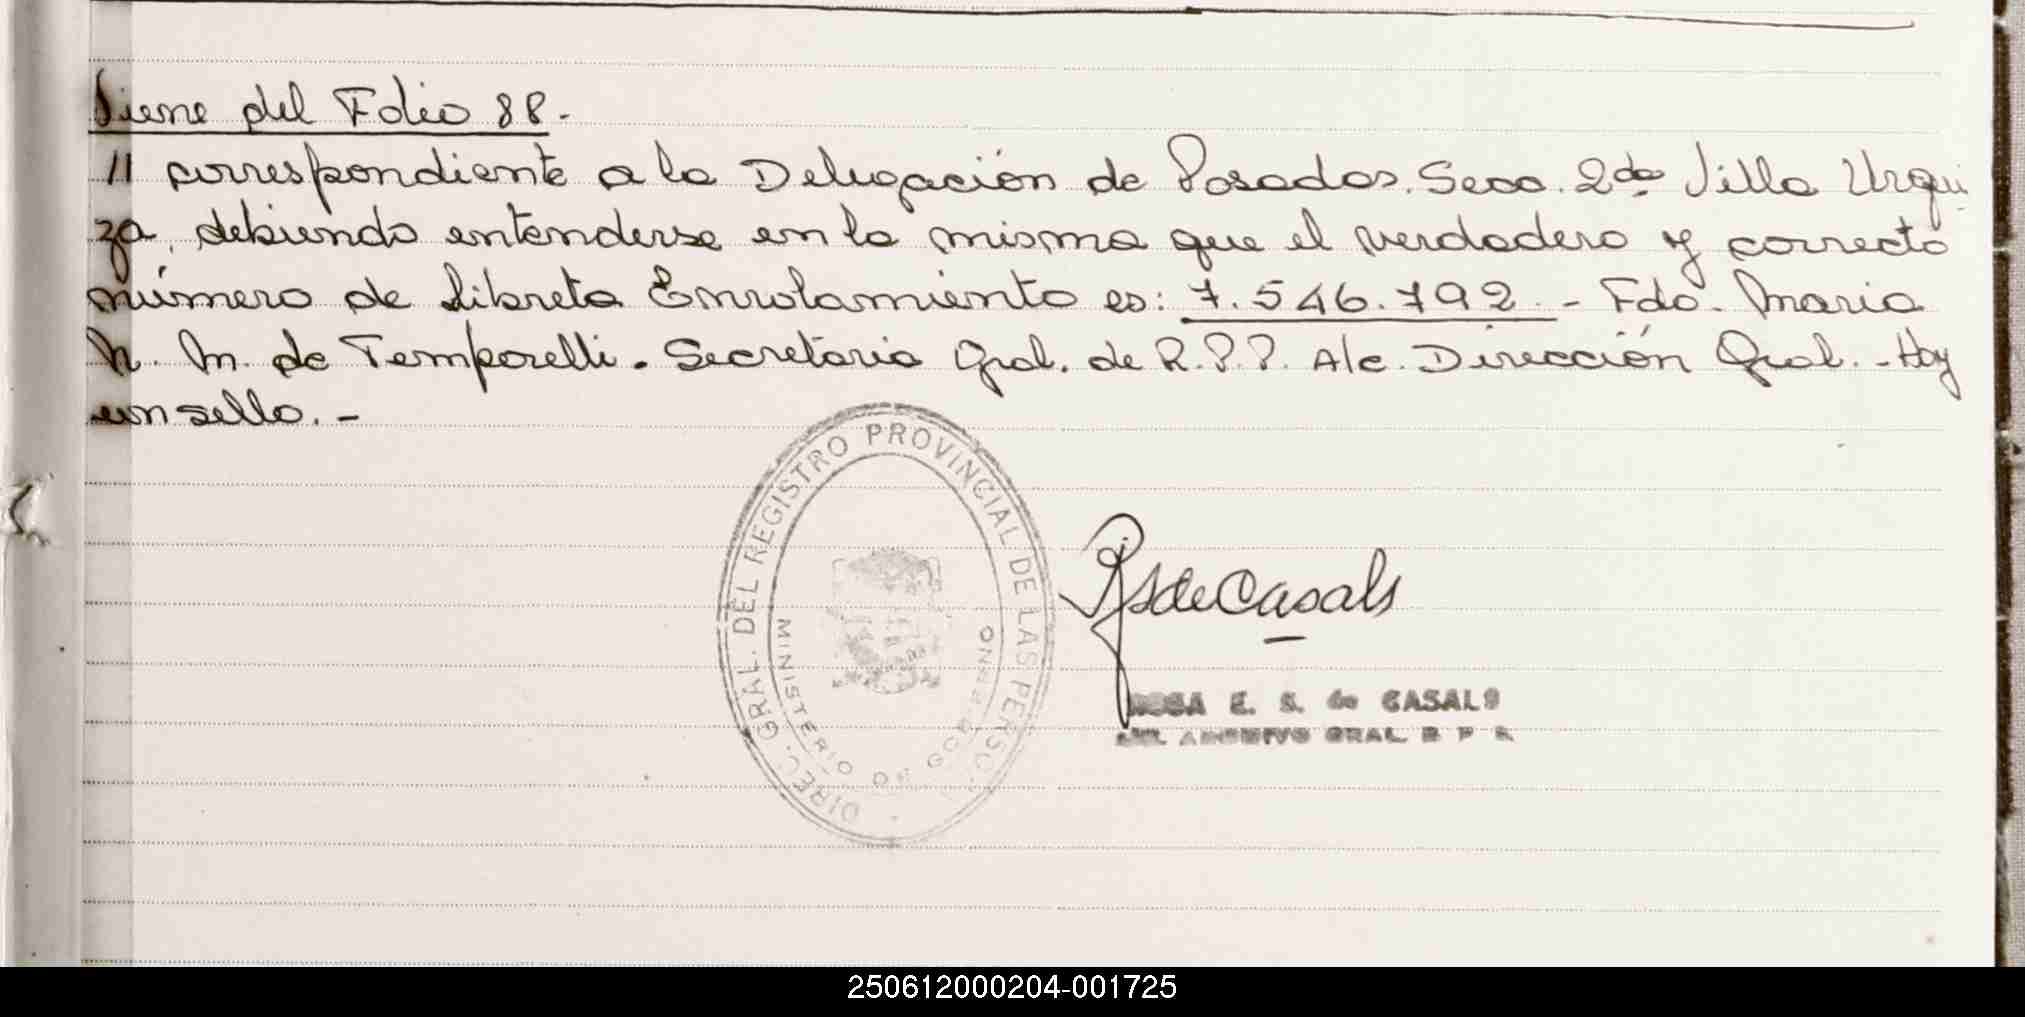 Viene del Folio 88.-
// correspondiente a la Delegación de Posadas. Secc. 2da Villa Urqui
za, debiendo entenderse en la misma que el verdadero y correcto
número de Libreta Enrolamiento es: 7.546.792.- Fdo. Maria
N. M. de Temporelli. Secretaria Gral. de R.P.P. A/c. Dirección Gral.- Hay
un sello.-
DIREC. GRAL. DEL REGISTRO PROVINCIAL DE LAS PERSO.
MINISTERIO DE GOBIERNO
RSdeCasals
ROSA E. S. de CASALS
ARCHIVO GRAL. R P P
250612000204-001725